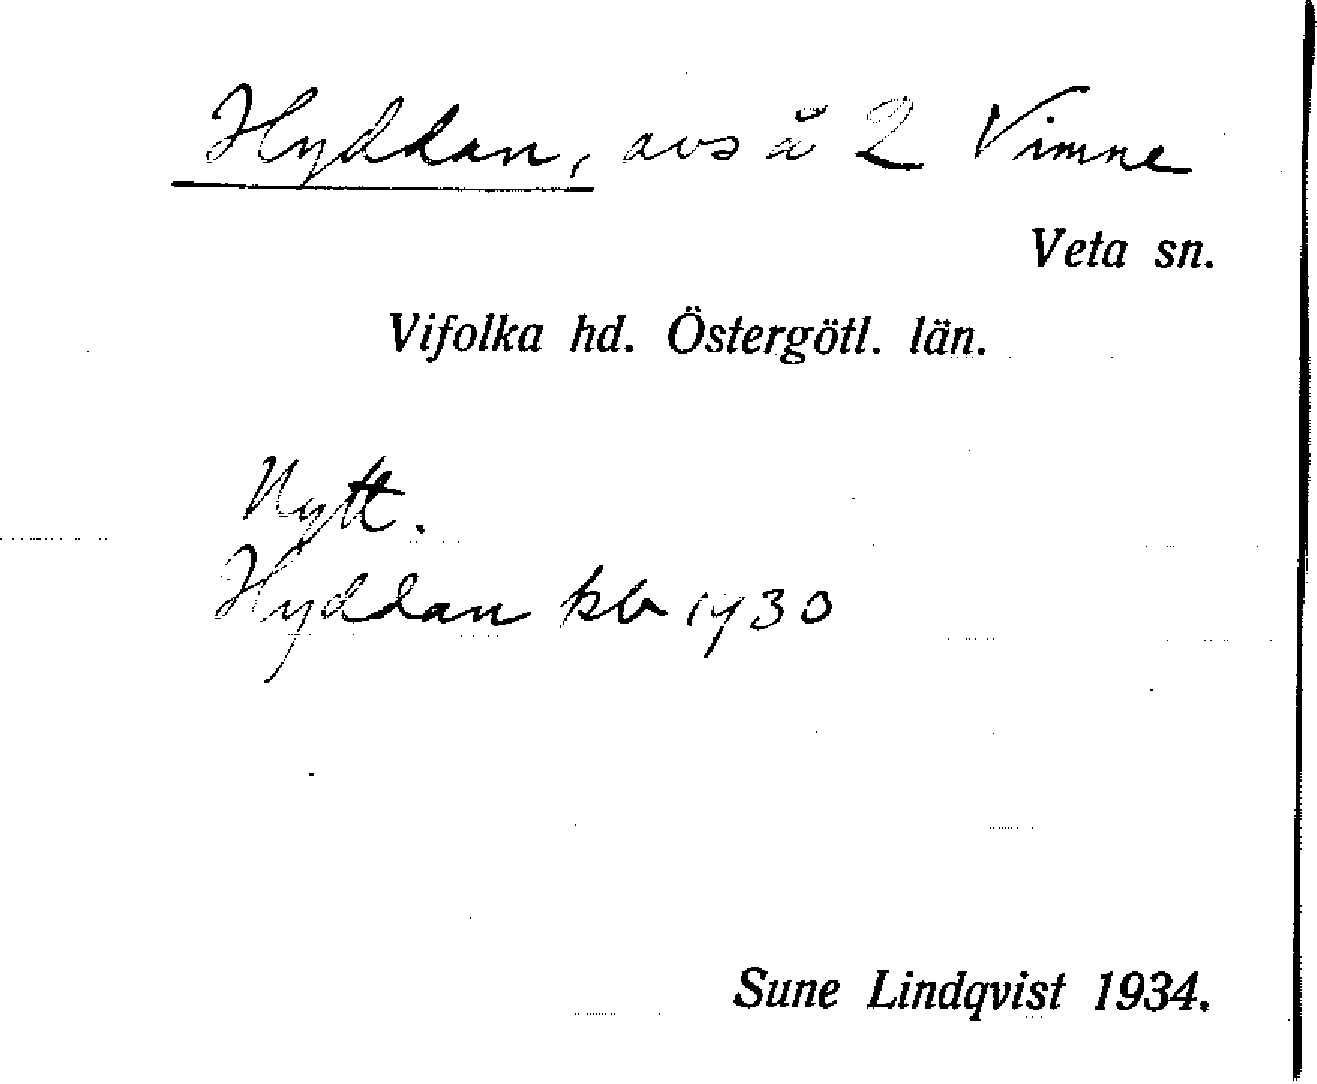 Hyddan, avs å 2 Vimne
Veta sn.
Vifolka hd. Östergötl. län.
Nytt.
Hyddan kb 1930
Sune Lindqvist 1934.